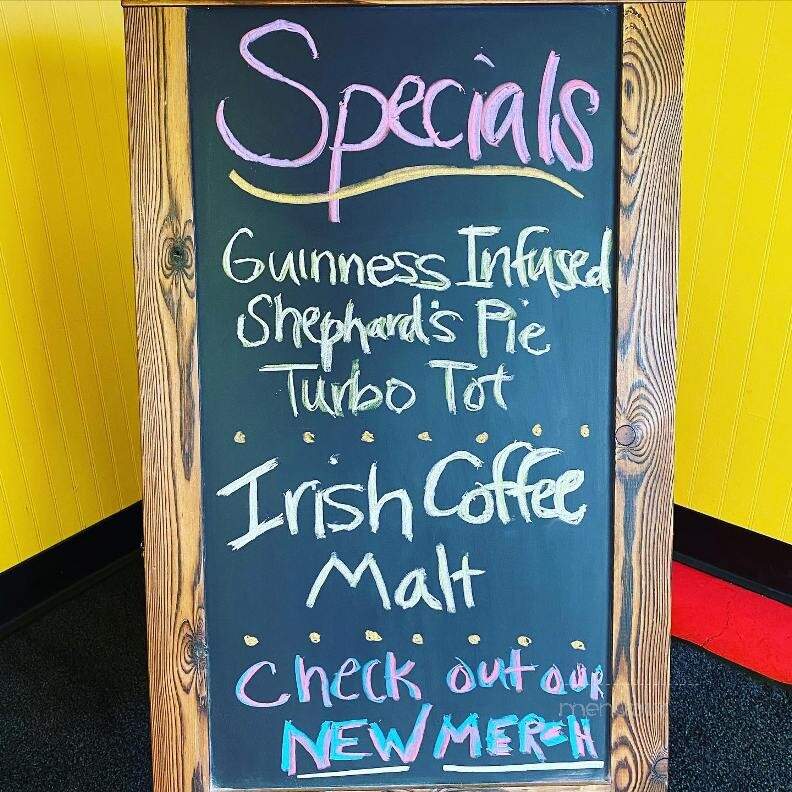 Specials
Guinness Infused
Shephard's Pie
Turbo Tot
Irish Coffee
Malt
Check out our
NEW MERCH